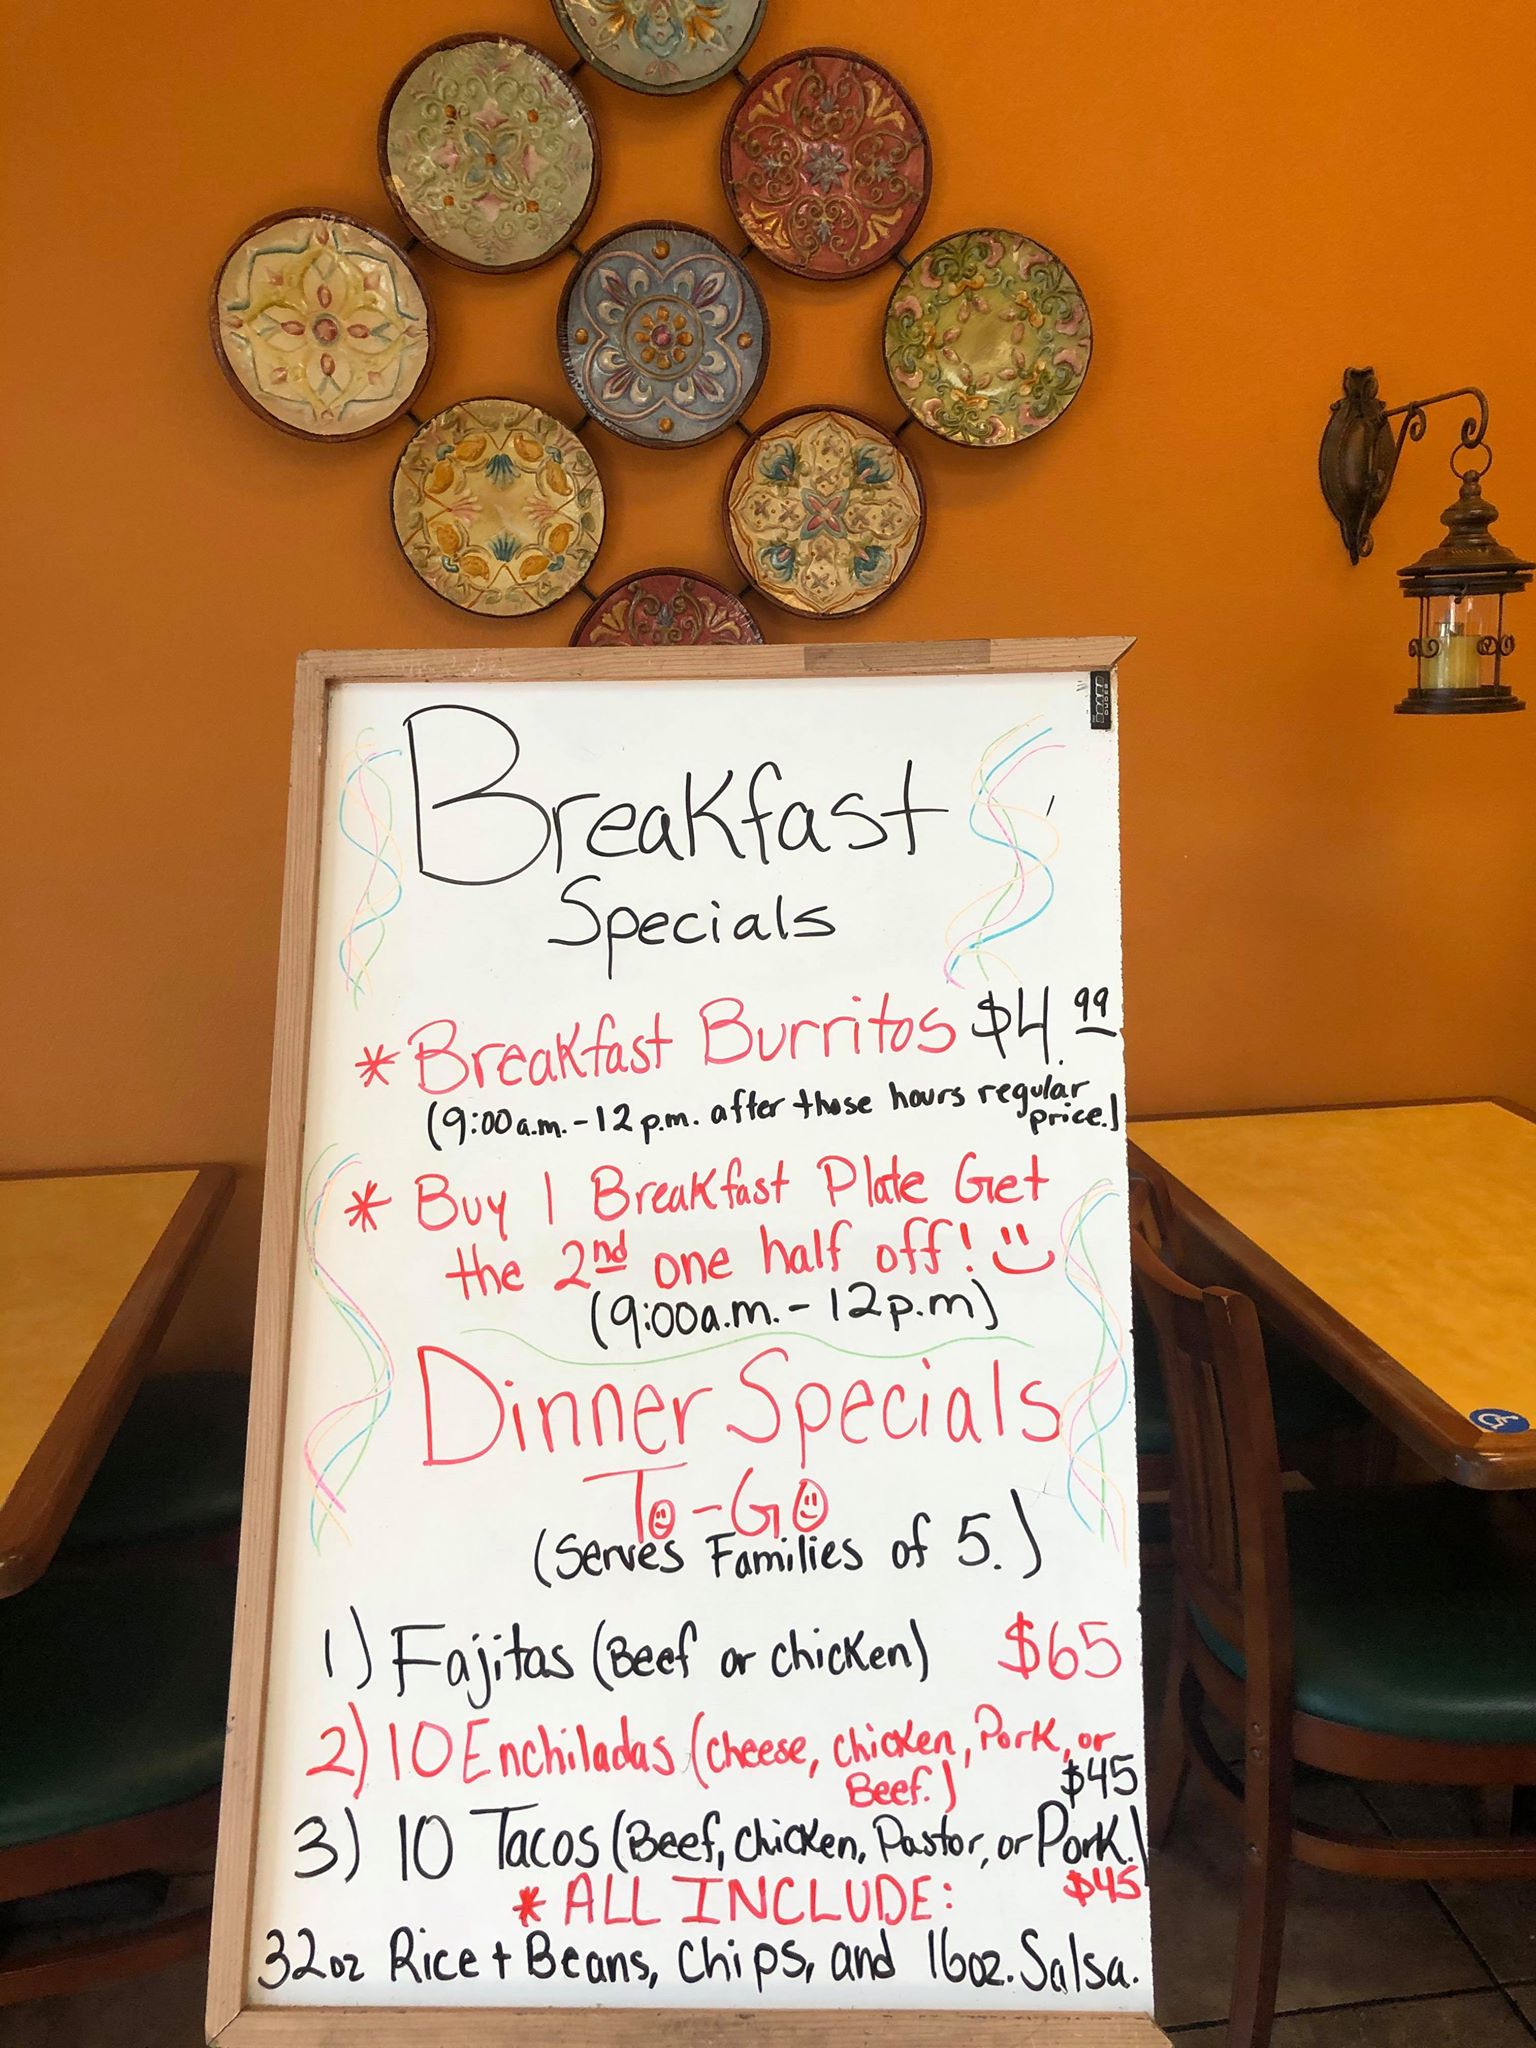 Breakfast
Specials
* Breakfast Burritos $4.99
(9:00a.m.-12p.m. after those hours regular
price.)
* Buy 1 Breakfast Plate Get
the 2nd one half off!
(9:00a.m.-12p.m)
Dinner Specials
To-Go
(Serves Families of 5.)
1) Fajitas (Beef or chicken) $65
2) 10 Enchiladas (cheese, chicken, Pork, or
Beef.) $45
3) 10 Tacos (Beef, chicken, Pastor, or Pork.)
$45
* ALL INCLUDE:
32oz Rice + Beans, chips, and 16oz. Salsa.